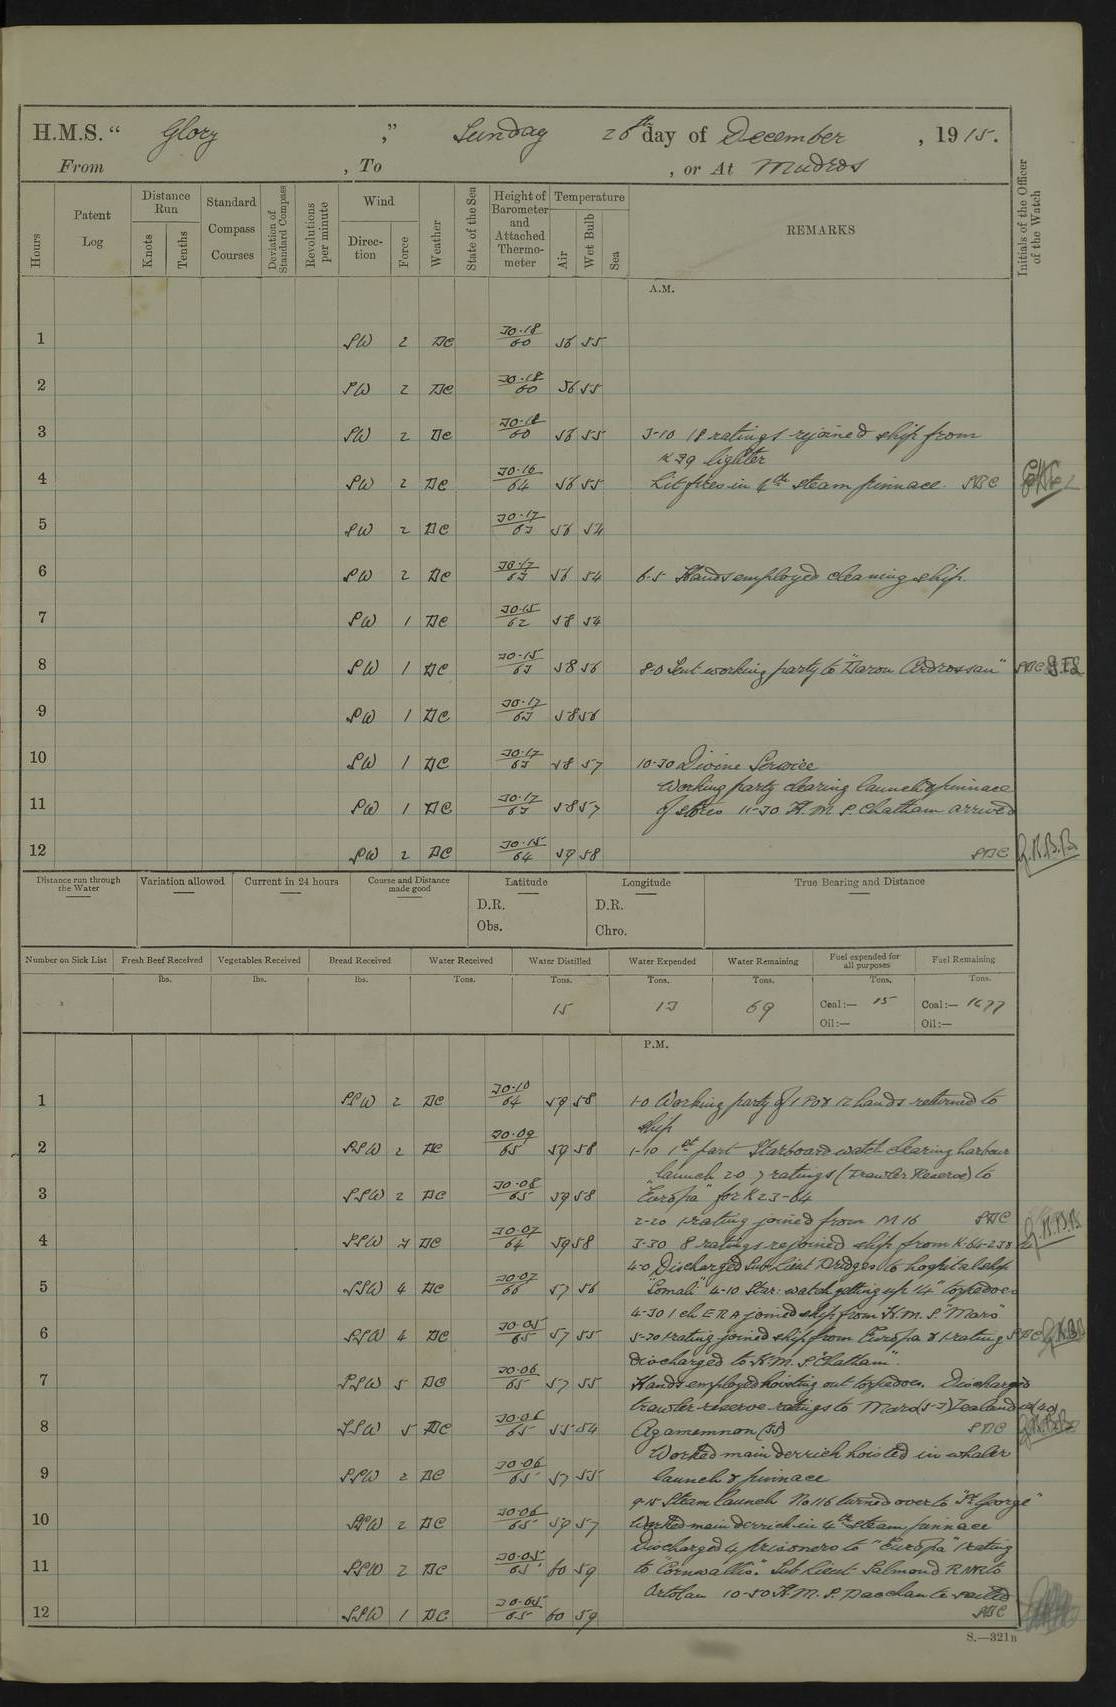 H.M.S. “ Glory ,” Sunday 26th day of December , 1915.
From , To , or At Mudros
Hours
Patent Log
Distance Run
Knots
Tenths
Standard Compass Courses
Deviation of Standard Compass
Revolutions per minute
Wind
Direction
Force
Weather
State of the Sea
Height of Barometer and Attached Thermometer
Temperature
Air
Wet Bulb
Sea
REMARKS
Initials of the Officer of the Watch
A.M.
1 SW 2 BC 30.18/60 56 55
2 SW 2 BC 30.18/60 56 55
3 SW 2 BC 30.18/60 56 55 3-10 18 ratings rejoined ship from
K 39 lighter
4 SW 2 BC 30.16/64 56 55 Lit fires in 4th steam pinnace.
5 SW 2 BC 30.17/63 56 54
6 SW 2 BC 30.17/63 56 54 6-5 Hands employed cleaning ship.
7 SW 1 BC 30.15/62 58 54
8 SW 1 BC 30.15/63 58 56 8-0 Sent working party to "Baron Ardrossan"
9 SW 1 BC 30.17/63 58 56
10 SW 1 BC 30.17/63 58 57 10-30 Divine Service
Working party clearing launch & pinnace
11 SW 1 BC 30.17/63 58 57 of stores 11-30 H.M.S. Chatham arrived
12 SW 2 BC 30.15/64 59 58
Distance run through the Water
Variation allowed
Current in 24 hours
Course and Distance made good
Latitude
D.R.
Obs.
Longitude
D.R.
Chro.
True Bearing and Distance
Number on Sick List
Fresh Beef Received
Vegetables Received
Bread Received
Water Received
Water Distilled
Water Expended
Water Remaining
Fuel expended for all purposes
Fuel Remaining
lbs. lbs. lbs. Tons. Tons. Tons. Tons. Tons. Tons.
15 13 69 Coal:— 15 Coal:— 1677
Oil:— Oil:—
P.M.
1 SSW 2 BC 30.10/64 59 58 1-0 Working party of 1 PO & 12 hands returned to
ship
2 SSW 2 BC 30.09/65 59 58 1-10 1st part Starboard watch clearing harbour
launch 20 7 ratings (Trawler Reserve) to
3 SSW 2 BC 30.08/65 59 58 "Europa" for K 23-64
2-20 1 rating joined from M 16
4 SSW 3 BC 30.07/64 59 58 3-30 8 ratings rejoined ship from K-64-238
4-0 Discharged Sub Lieut Bridges to hospital ship
5 SSW 4 BC 30.07/66 57 56 "Somali" 4-10 Star: watch getting up 14" torpedoes
4-30 1 ch ERA joined ship from H.M.S. "Mars"
6 SSW 4 BC 30.05/65 57 55 5-20 1 rating joined ship from Europa & 1 rating
discharged to H.M.S. "Chatham".
7 SSW 5 BC 30.06/65 57 55 Hands employed hoisting out torpedoes. Discharged
trawler reserve ratings to Mars
8 SSW 5 BC 30.06/65 55 54 Agamemnon
Worked main derrick hoisted in whaler
9 SSW 2 BC 30.06/65 57 55 launch & pinnace
9-15 Steam launch No 116 turned over to "St George"
10 SSW 2 BC 30.06/65 59 57 Worked main derrick in 4th steam pinnace
Discharged 4 prisoners to "Europa" 1 rating
11 SSW 2 BC 30.05/65 60 59 to "Cornwallis". Sub Lieut Salmond RNR to
10-50 H.M.S. Bacchante sailed
12 SSW 1 BC 30.05/65 60 59
S.—321B